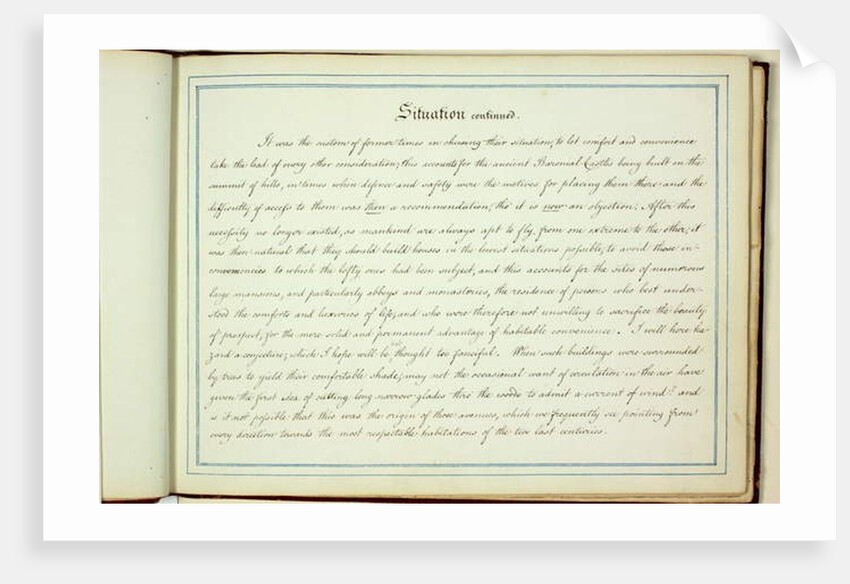 Situation continued.
It was the custom of former times in chusing their situation, to let comfort and convenience
take the lead of every other consideration; this accounts for the ancient Baronial Castles being built on the
summit of hills, in times when defence and safety were the motives for placing them there and the
difficulty of access to them was then a recommendation, tho' it is now an objection: After this
necessity no longer existed, as mankind are always apt to fly from one extreme to the other; it
was then natural that they should build houses in the lowest situations possible, to avoid those in-
conveniencies to which the lofty ones had been subject, and this accounts for the sites of numerous
large mansions, and particularly abbeys and monasteries, the residence of persons who best under-
stood the comforts and luxuries of life, and who were therefore not unwilling to sacrifice the beauty
of prospect, for the more solid and permanent advantage of habitable convenience. I will here ha-
zard a conjecture, which I hope will be not thought too fanciful. When such buildings were surrounded
by trees to yield their comfortable shade, may not the occasional want of circulation in the air have
given the first idea of cutting long narrow glades thro' the woods to admit a current of wind? and
is it not possible that this was the origin of those avenues, which we frequently see pointing from
every direction towards the most respectable habitations of the two last centuries.